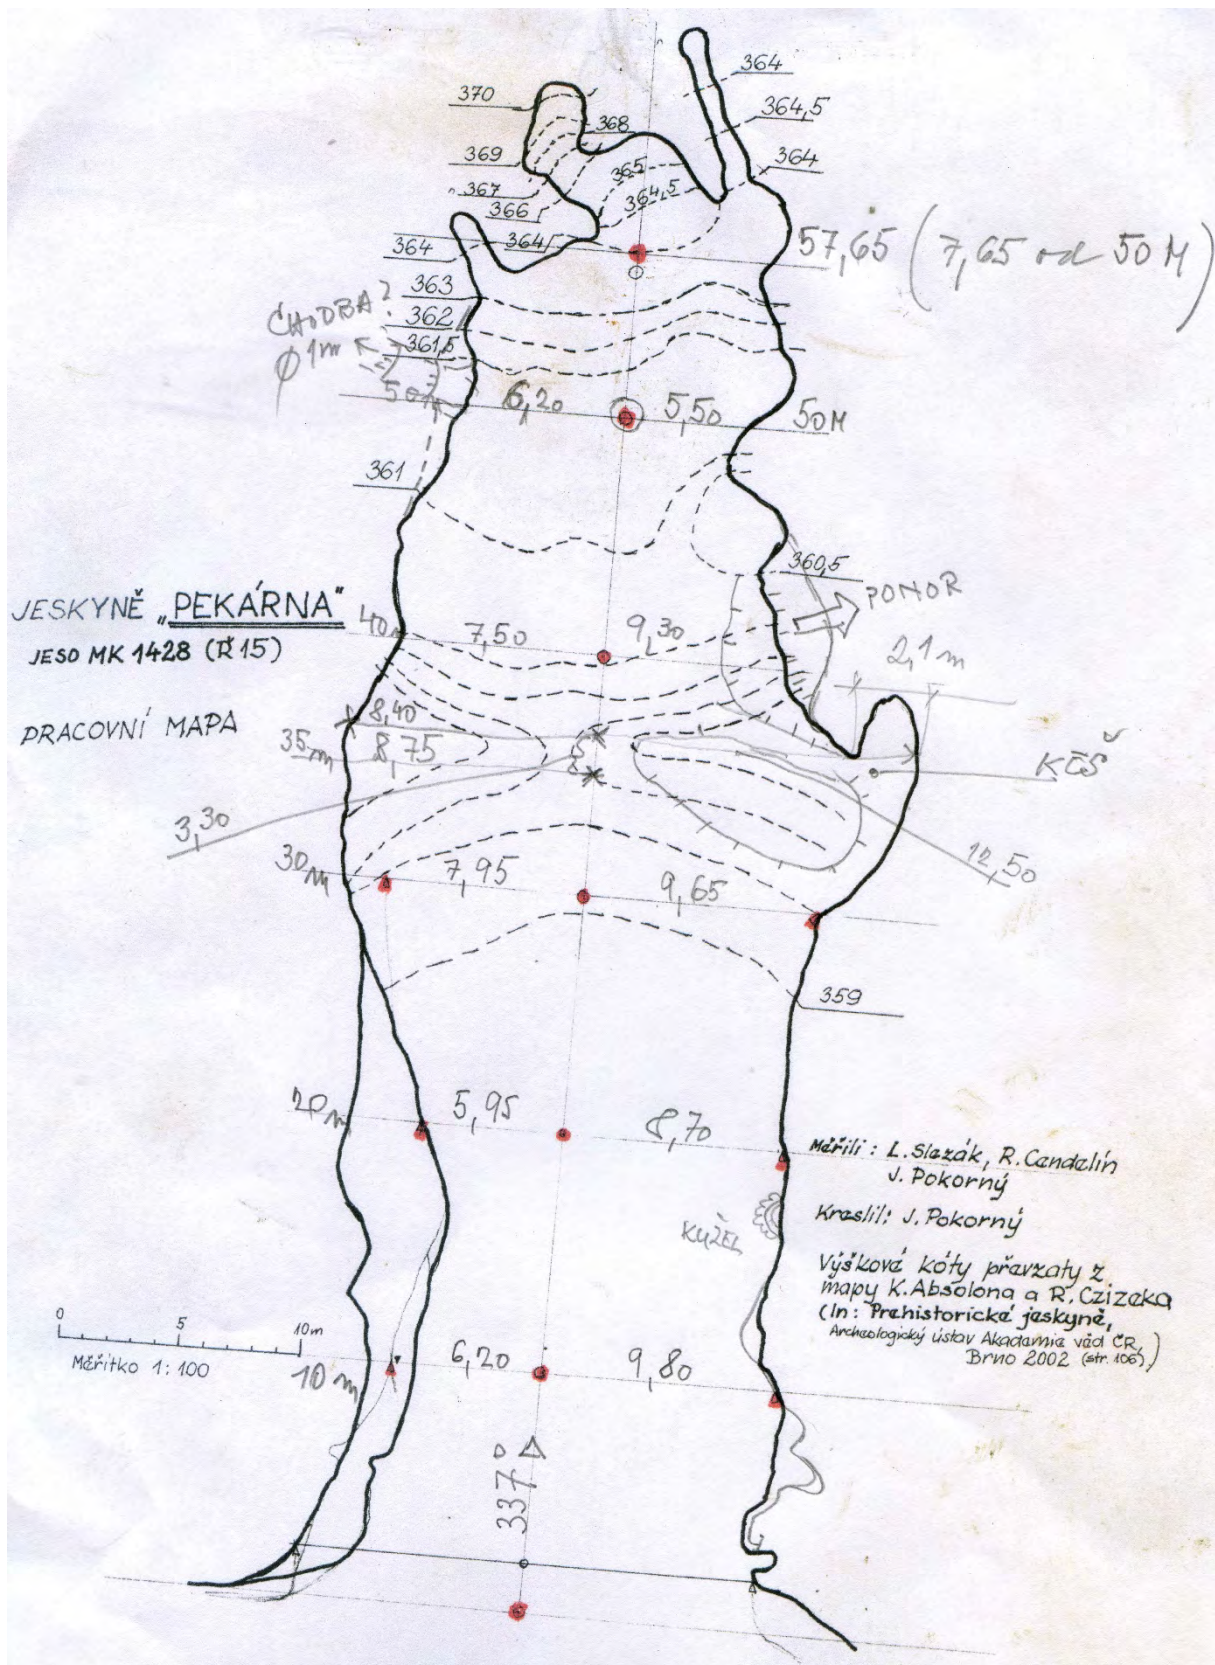 364
370
364,5
368
369
364
365
367
364,5
366
364
364
57,65 (7,65 od 50 M)
363
CHODBA?
362
Ø 1m
361,5
50
6,20
5,50
50M
361
360,5
PONOR
JESKYNĚ „PEKÁRNA"
JESO MK 1428 (Ř 15)
40m
7,50
9,30
2,1 m
8,40
PRACOVNÍ MAPA
35m
8,75
KČŠ
3,30
12,50
30m
7,95
9,65
359
20m
5,95
8,70
Měřili: L. Slezák, R. Cendelín
J. Pokorný
KUŽEL
Kreslil: J. Pokorný
Výškové kóty převzaty z
mapy K. Absolona a R. Czizeka
(In: Prehistorické jeskyně,
Archeologický ústav Akademie věd ČR,
Brno 2002 (str. 106),)
0 5 10m
Měřítko 1:100
10 m
6,20
9,80
337°